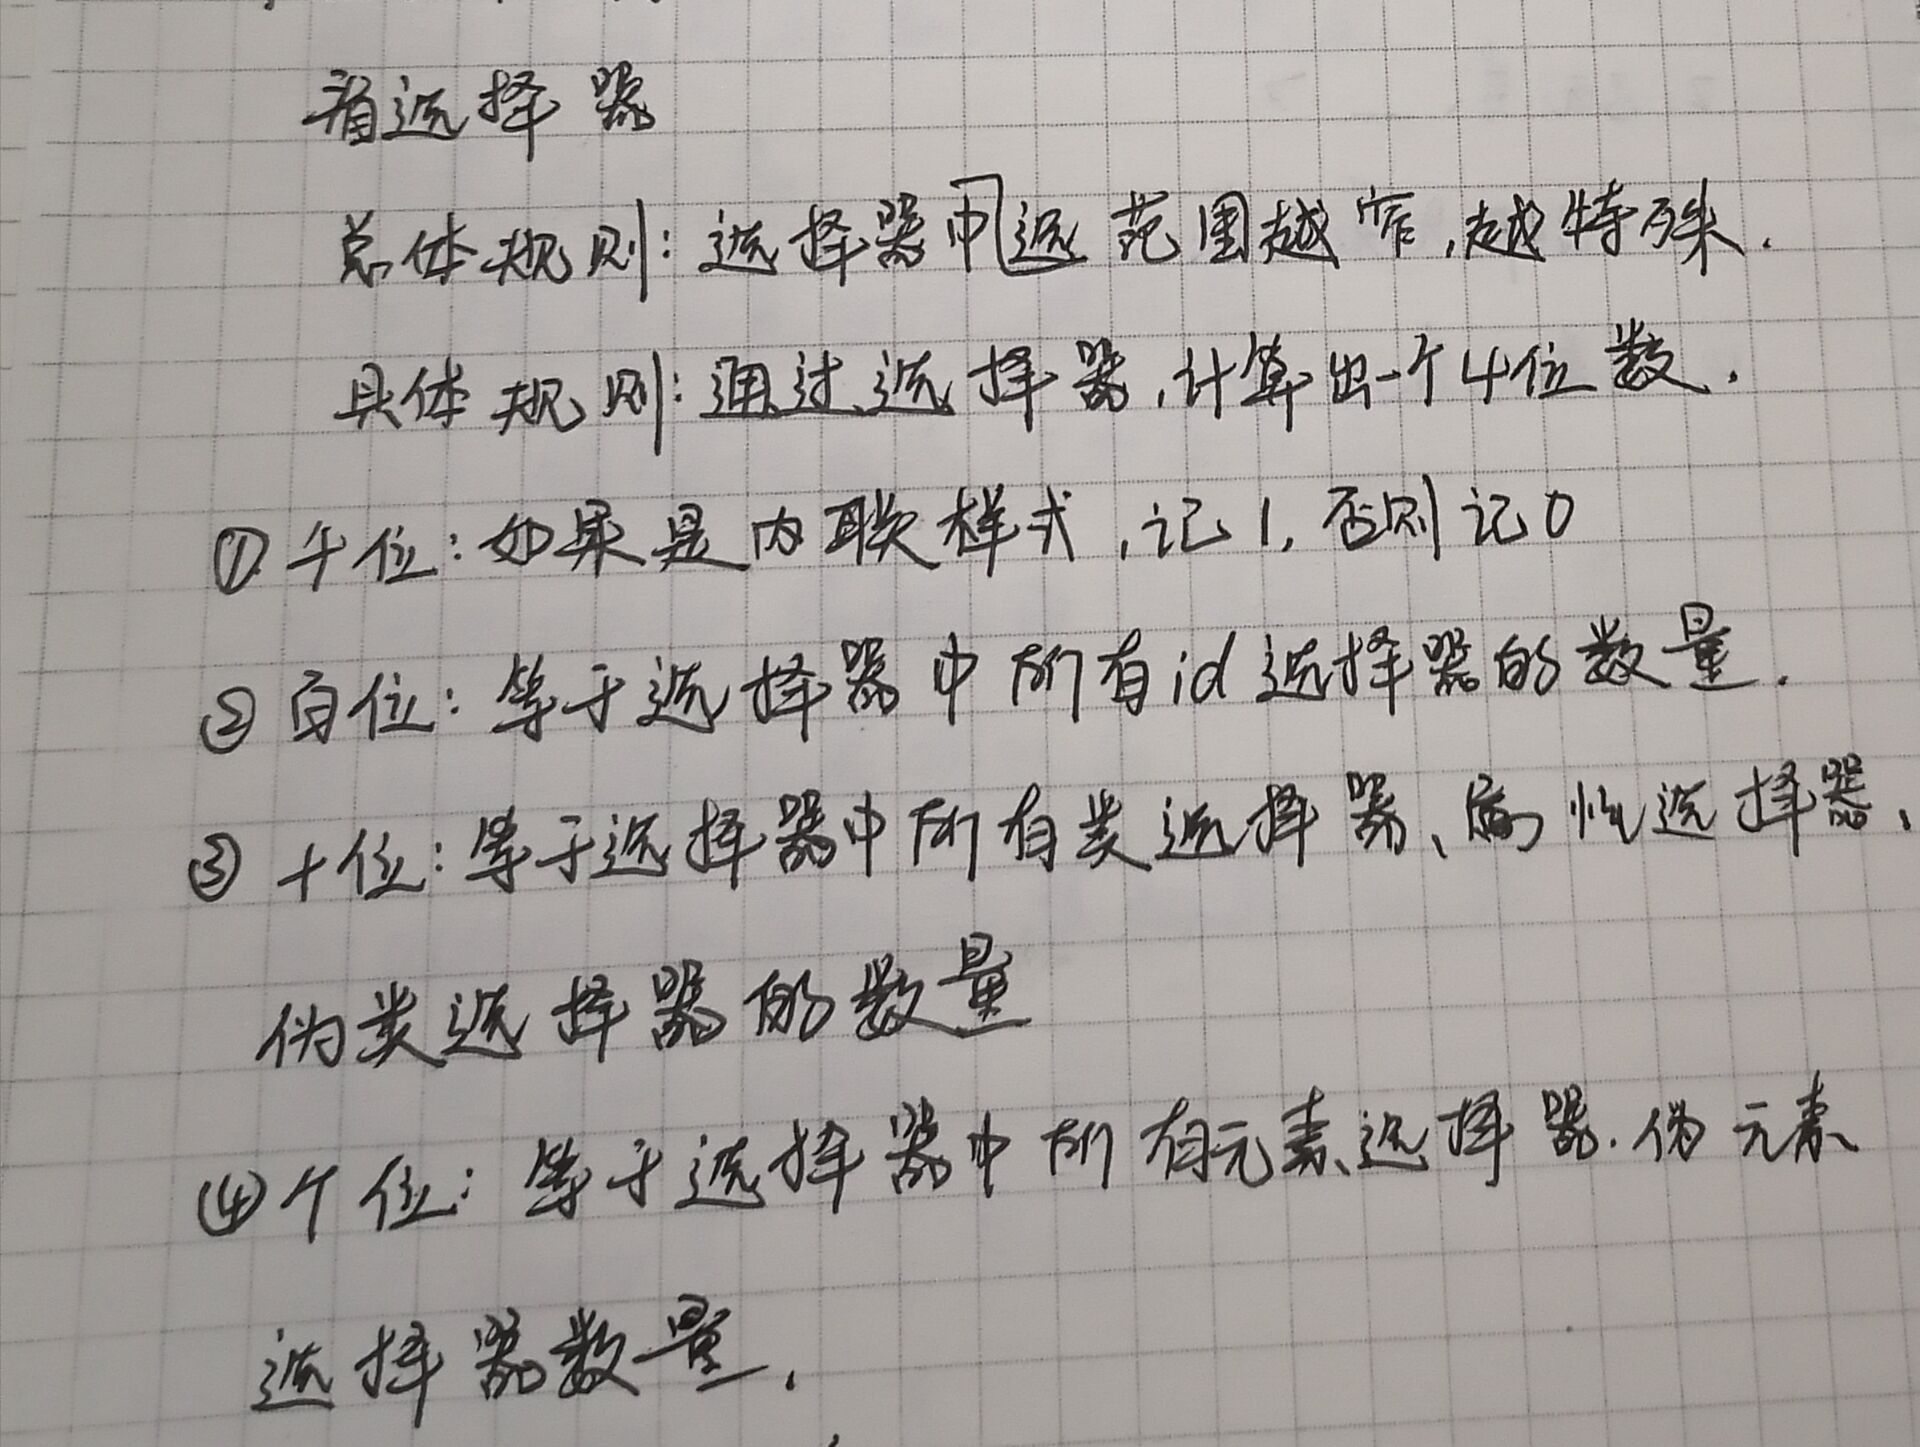 看选择器
总体规则：选择器中选范围越窄，越特殊.
具体规则：通过选择器，计算出一个4位数.
① 千位：如果是内联样式，记1，否则记0
② 百位：等于选择器中所有id选择器的数量.
③ 十位：等于选择器中所有类选择器、属性选择器、
伪类选择器的数量
④ 个位：等于选择器中所有元素选择器.伪元素
选择器数量.